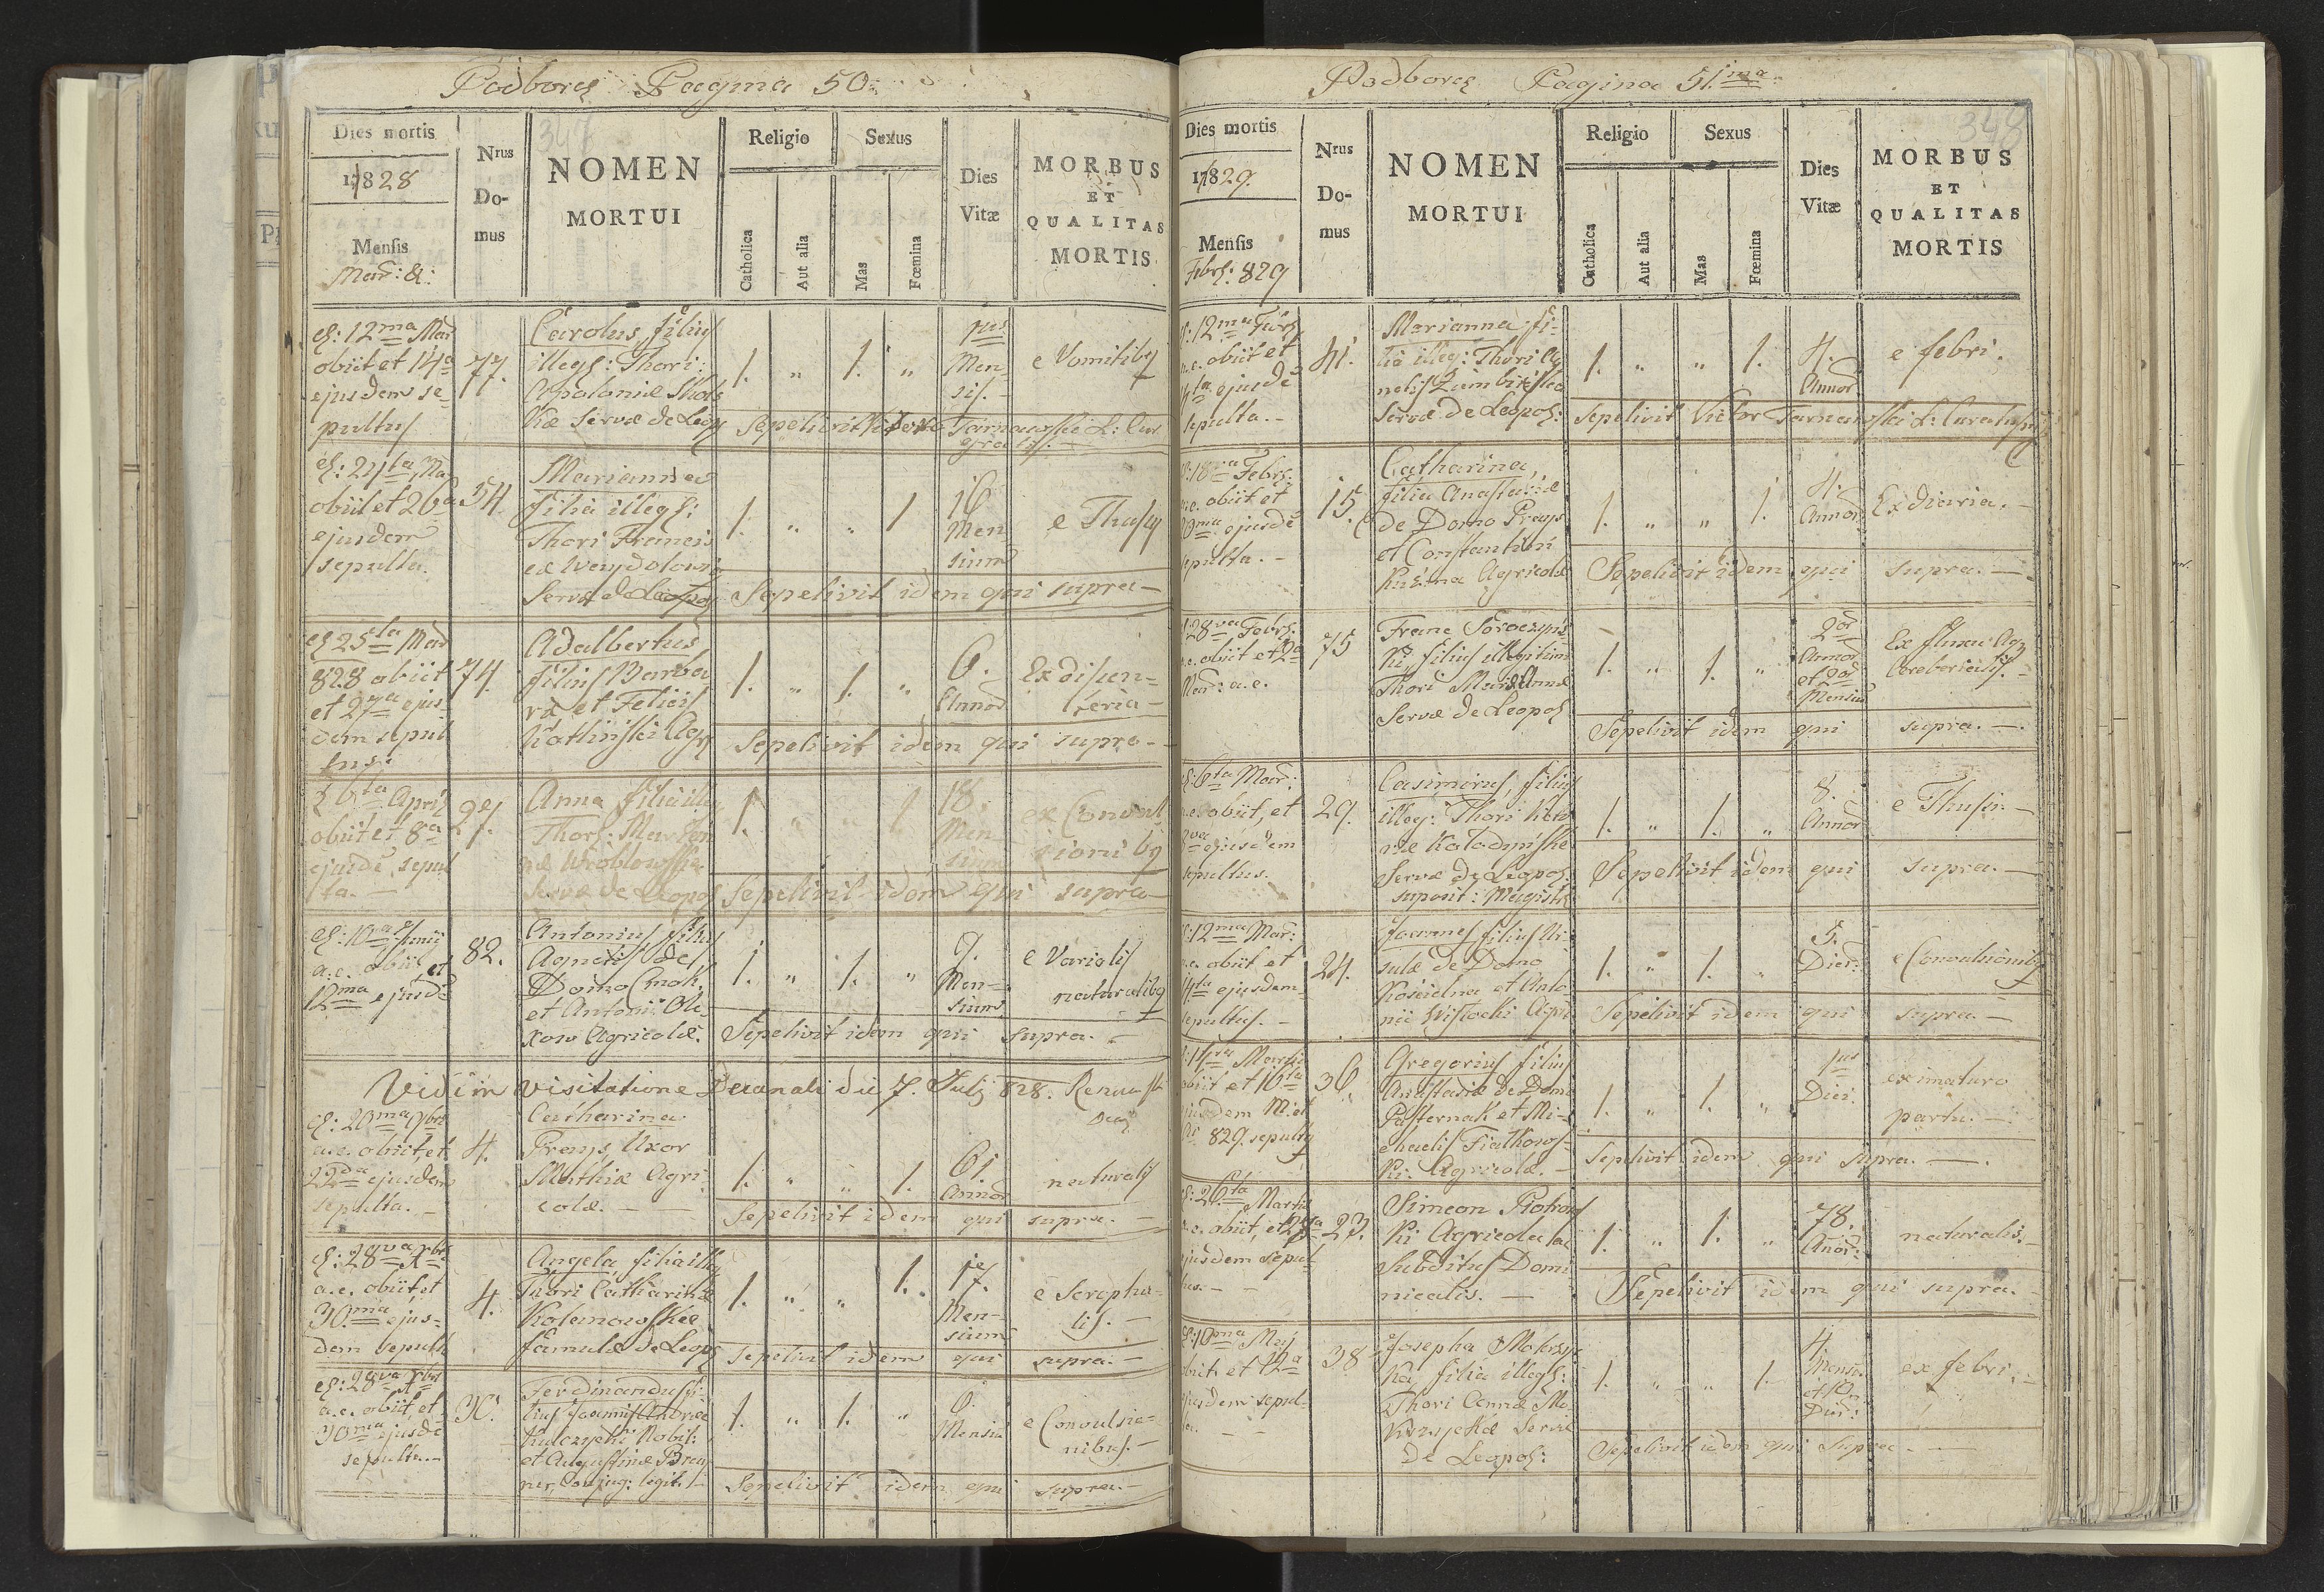 Podborce Pagina 50.
347
Dies mortis
1828
Mensis
Mar: &:
Nrus Domus
NOMEN
MORTUI
Religio
Catholica
Aut alia
Sexus
Mas
Fœmina
Dies
Vitæ
MORBUS
ET
QUALITAS
MORTIS
12ma Mar
obiit et 14a
ejusdem se-
pultus
77.
Carolus, filius
illegi: Thori:
Apoloniæ
Servæ de Leop
1. " 1. "
1us
Men-
sis.
e Vomitibq
Sepelivit Victor Tarnawski L: Cur
24ta Ma
obiit et 26a
ejusdem
sepulta.
54
Marianna
filia illegi:
Thori Francis
Servæ de Leopol
1. " " 1
16
Men-
sium
e Thusy
Sepelivit idem qui supra —
25ta Mar
828 obiit
et 27a ejus-
dem sepul
tus.
74.
Adalbertus
filius Barba-
ræ et Felicis
Kotlinski Agr
1. " 1. "
6.
Annor
Ex disen-
teria —
Sepelivit idem qui supra —
6ta April
obiit et 8a
ejusdē sepul
ta. —
97.
Anna filia illeg
Thori: Marian
næ Wroblewska
Servæ de Leopol
1. " 1
18.
Men-
sium
ex Convul
sionibq
Sepelivit idem qui supra —
10a Junii
a.c. obiit, et
12ma ejusdē
82.
Antonius filius
Agnetis de
Domo
et Antonii Ole-
xow Agricolæ.
1. " 1. "
9.
Men-
sium
e Variolis
naturalibq
Sepelivit idem qui supra. -
Vidi in visitatione Decanali die 7. Julij 828.
20ma 9bris
a.c. obiit, et
22da ejusdem
sepulta. —
4.
Catharina
Preys, Uxor
Mathiæ Agri-
colæ. — —
1. " " 1.
61
Annor
naturalis
Sepelivit idem qui supra. —
28va Xbris
a.c. obiit, et
30ma ejus-
dem sepulta
4.
Angela, filia illeg
Thori Catharinæ
famulæ de Leop
1. " " 1.
17.
Men-
sium
e Scropha-
lis. —
Sepelivit idem qui supra. —
28va Xbris
a.c. obiit, et
30ma ejusdē
sepulta. —
30.
Ferdinandus fi-
lius Joannis Andreæ
Kulczycki Nobil:
et Augustinæ Bren
ner, Conjug: legit:
1. " 1. "
6.
Mensiu
e Convulsio-
nibus. —
Sepelivit idem qui supra. —
Podborce Pagina 51.ma
348
Dies mortis
1829.
Mensis
Febr: 829
Nrus Domus
NOMEN
MORTUI
Religio
Catholica
Aut alia
Sexus
Mas
Fœmina
Dies
Vitæ
MORBUS
ET
QUALITAS
MORTIS
12ma
a.c. obiit et
14ta ejusdē
sepulta. —
41.
Marianna fi-
lia illeg: Thori Ag
netis
Servæ de Leopol:
1. " " 1.
4.
Annor
e febri.
Sepelivit Victor Tarnawski L:
18va Febr:
a.c. obiit et
20ma ejusdē
sepulta. —
15.
Catharina,
filia Anastasiæ
de Domo Preys
et Constantini
Kuźma Agricolæ
1. " " 1.
4.
Annor
Ex diaria. —
Sepelivit idem qui supra. —
28va Febr:
a.c. obiit et 2a
Mar: a.c.
75
Franc Soroczyns-
ki, filius illegitim
Thori Mariannæ
Servæ de Leopol
1. " 1. "
2or
Annor
et 2or
Mensiu
Sepelivit idem qui supra. —
6ta Mar:
a.c. obiit, et
8va ejusdem
sepultus.
29.
Casimirus, filius
illeg: Thori
næ Kotodynske
Servæ de Leopol:
1. " 1. "
8.
Annor
e Thusi. —
Sepelivit idem qui supra. —
12ma Mar:
a.c. obiit et
14ta ejusdem
sepultus. —
24.
Joannes filius Ur-
sulæ de Domo
Koscielna et Anto-
nii Wistocki Agri
1. " 1. "
5.
Dier:
e Convulsionibq
Sepelivit idem qui supra. —
14ta Martii
obiit et 16ta
ejusdem M. et
829. sepultq
36
Gregorius filius
Anastasiæ de Domo
Pasternak et Mi-
chaelis Fiałkows-
ki Agricolæ. —
1. " 1. "
1us
Diei.
ex imaturo
partu. —
Sepelivit idem qui supra. —
26ta Martii
a.c. obiit, et
ejusdem sepul-
tus. — —
23.
Simeon Piotrows
ki Agricola ac
Subditus Domi-
nicalis. —
1. " 1. "
78.
Anor:
naturalis. —
Sepelivit idem qui supra. —
10ma Maj
obiit et 12a
ejusdem sepul-
ta. — —
38
Josepha Mokrzyc
ka filia illegi:
Thori Annæ Mo-
krzyckæ Servæ
de Leopol:
1. " " 1.
4
Mensiu
et 10
Dier:
ex febri. —
Sepelivit idem qui supra. —